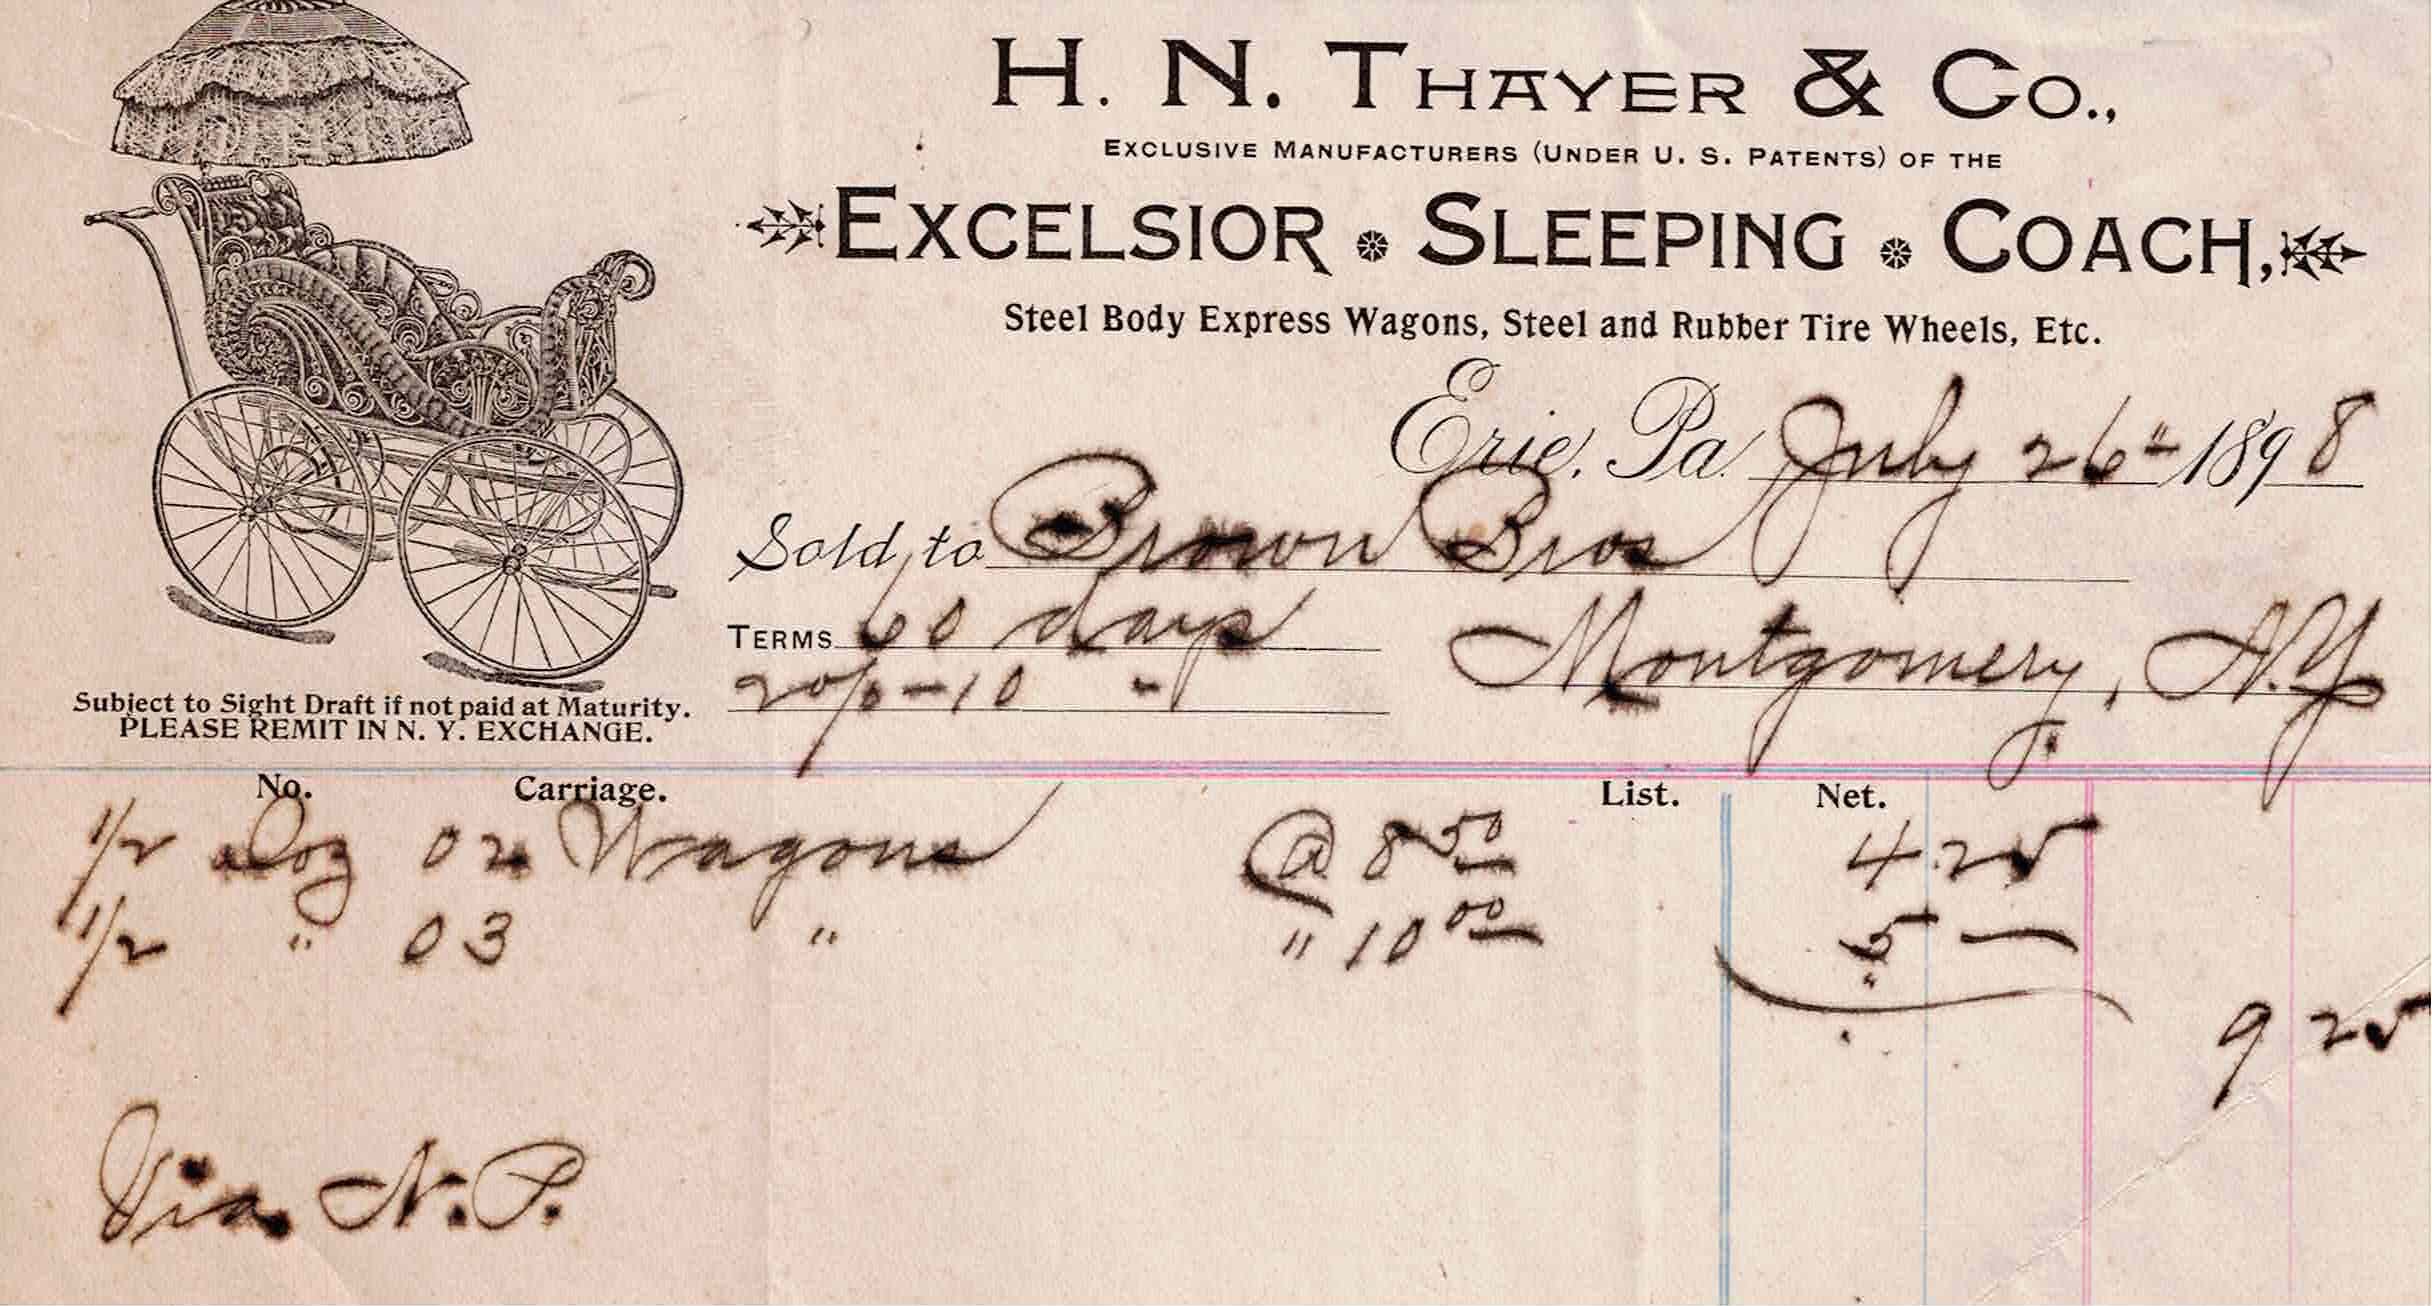 H. N. THAYER & Co.,
EXCLUSIVE MANUFACTURERS (UNDER U. S. PATENTS) OF THE
EXCELSIOR SLEEPING COACH,
Steel Body Express Wagons, Steel and Rubber Tire Wheels, Etc.
Erie, Pa. July 26" 1898
Sold to Brown Bros
TERMS 60 days Montgomery, N.Y.
2%-10 "
Subject to Sight Draft if not paid at Maturity.
PLEASE REMIT IN N. Y. EXCHANGE.
No. Carriage. List. Net.
1/2 Doz 02 Wagons @ 8 50 4.25
1/2 " 03 " " 10 00 5 —
9 25
Via N.P.